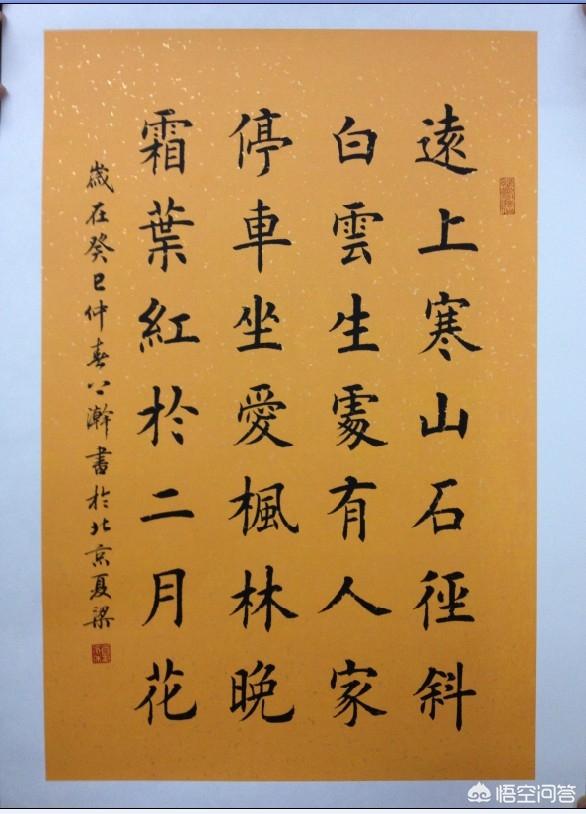 遠上寒山石徑斜
白雲生處有人家
停車坐愛楓林晚
霜葉紅於二月花
歲在癸巳仲春公瀚書於北京夏梁
悟空问答